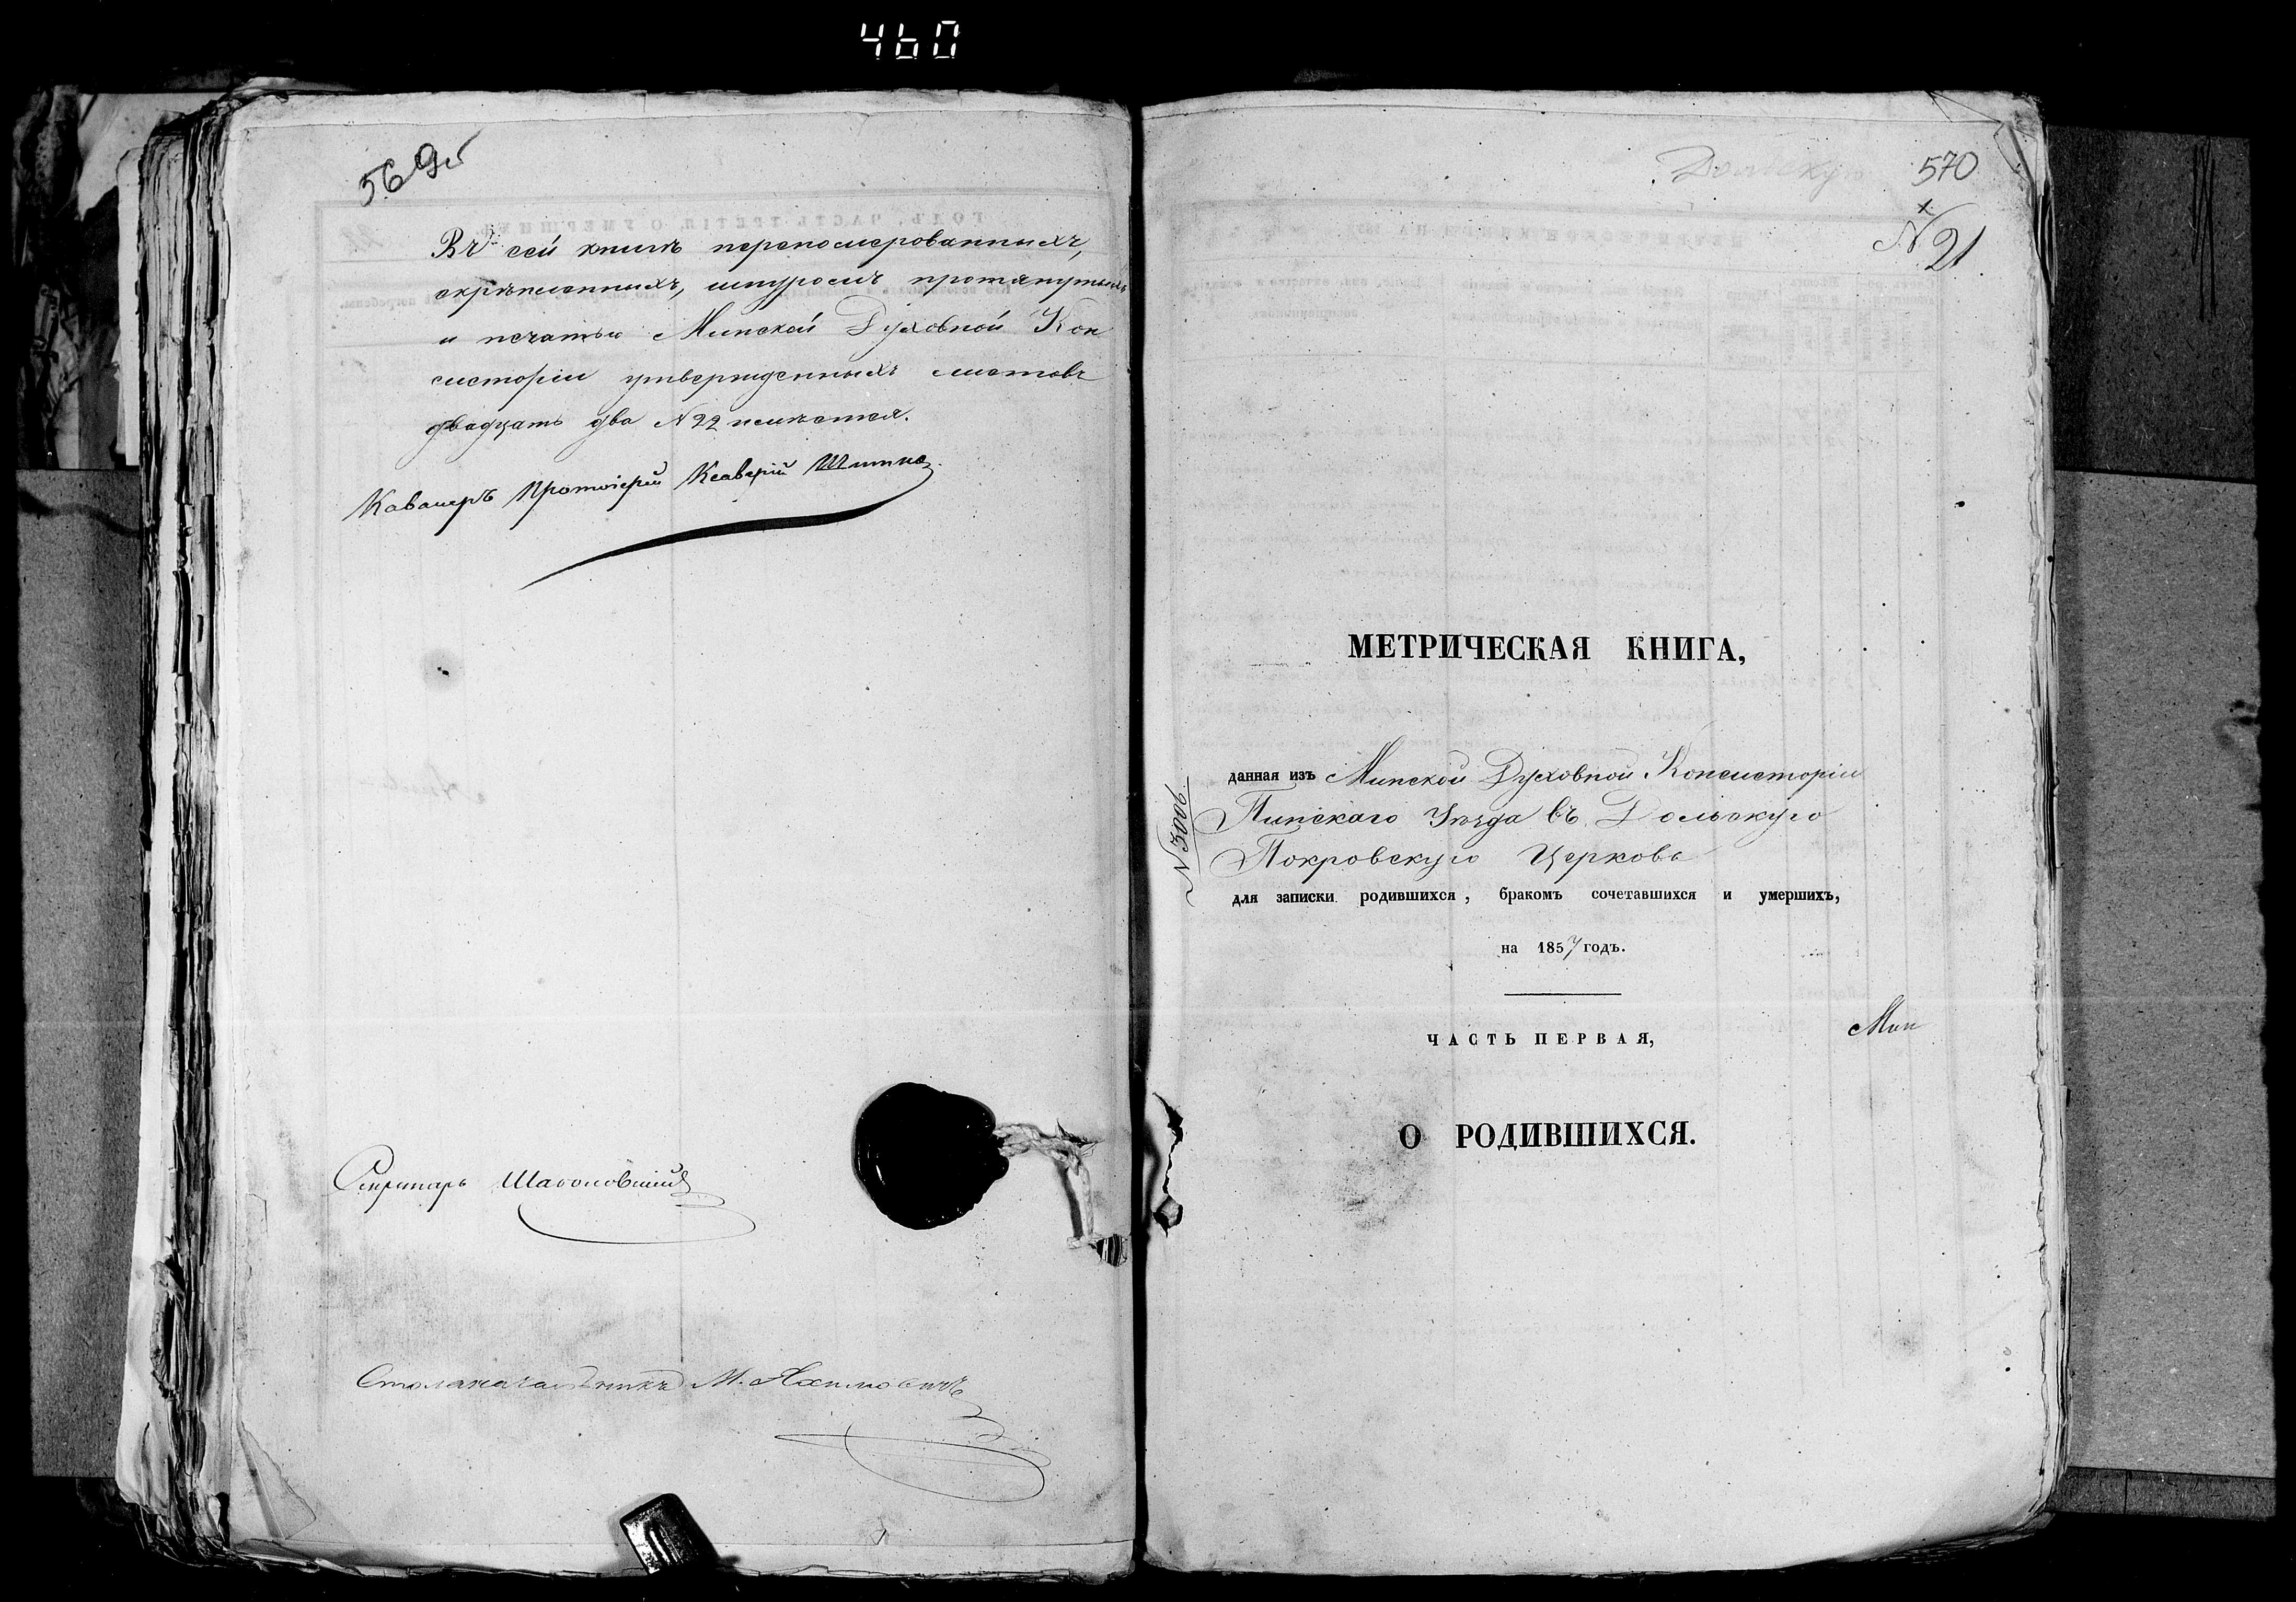 460
569об
Въ сей книгѣ перепомерованныхъ,
скрѣпленныхъ, шнуромъ протянутыхъ
и печатью Минской Духовной Кон
систоріи утвержденныхъ листовъ
двадцать два N 22 имѣется.
Каваллеръ Протоіерей Ксаверій
Секретарь
Столоначальникъ М.
Дольскую
570
N 21
МЕТРИЧЕСКАЯ КНИГА,
N 3006.
данная изъ Минской Духовной Консисторіи
Пинскаго Уѣзда въ Дольскую
Покровскую Церковь
для записки родившихся, бракомъ сочетавшихся и умершихъ,
на 1857 годъ.
ЧАСТЬ ПЕРВАЯ,
Мин
О РОДИВШИХСЯ.